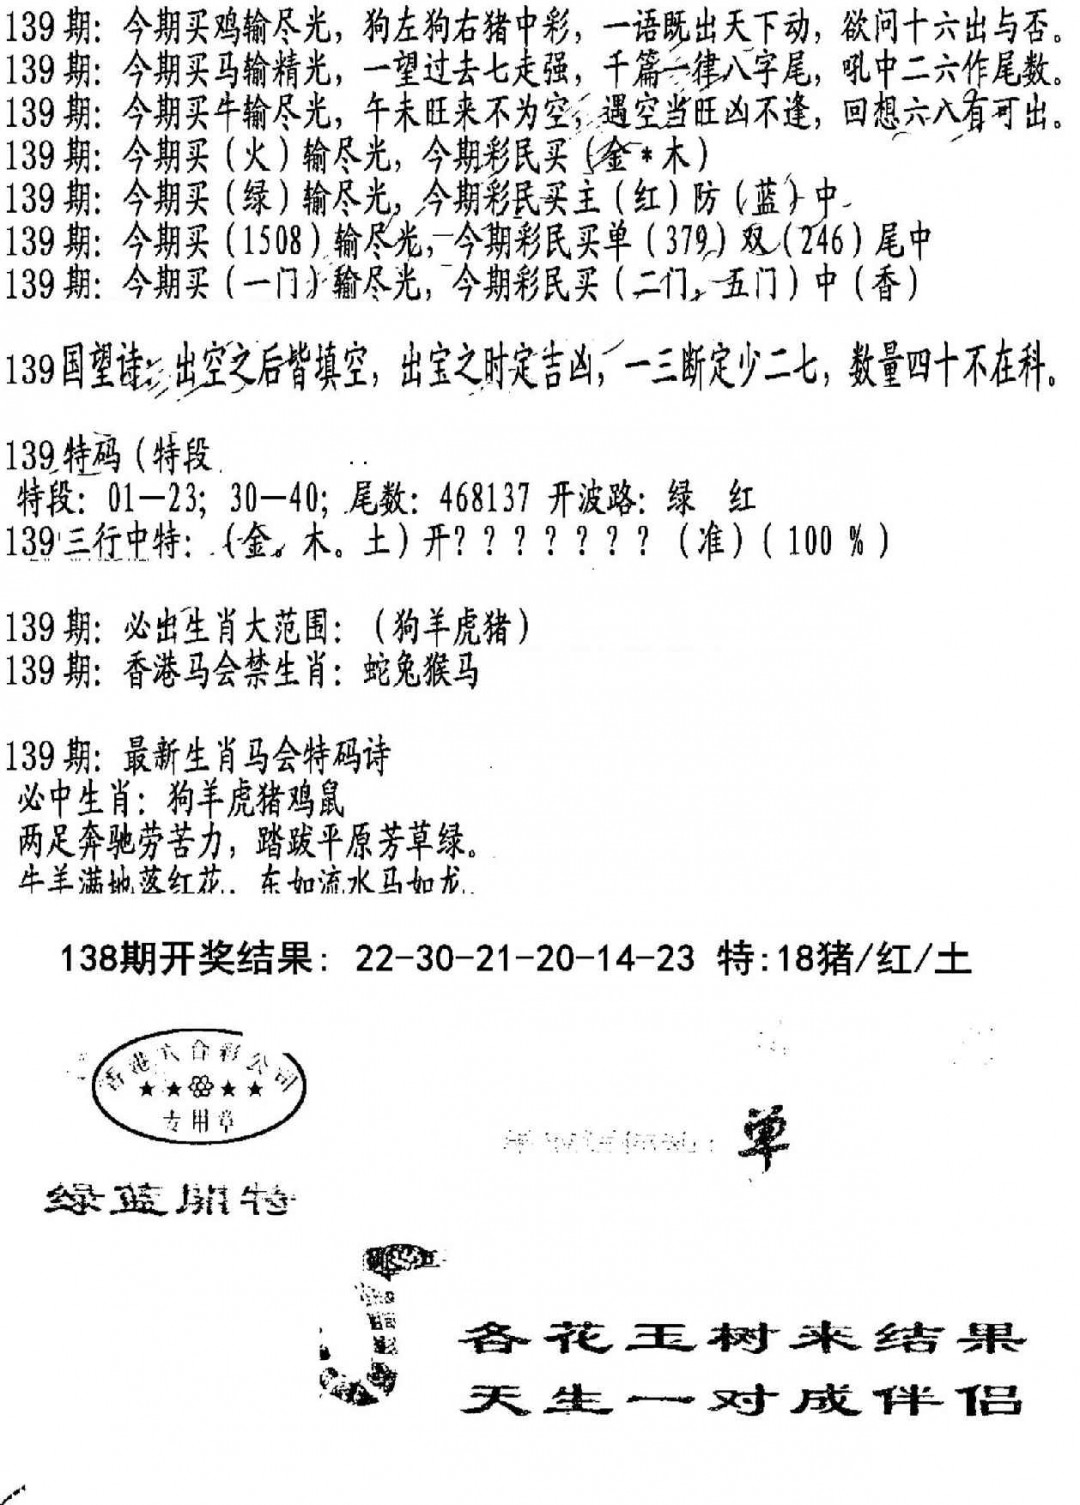 139期：今期买鸡输尽光，狗左狗右猪中彩，一语既出天下动，欲问十六出与否。
139期：今期买马输精光，一望过去七走强，千篇一律八字尾，吼中二六作尾数。
139期：今期买牛输尽光，午未旺来不为空，遇空当旺凶不逢，回想六八有可出。
139期：今期买（火）输尽光，今期彩民买（金*木）
139期：今期买（绿）输尽光，今期彩民买主（红）防（蓝）中
139期：今期买（1508）输尽光，今期彩民买单（379）双（246）尾中
139期：今期买（一门）输尽光，今期彩民买（二门。五门）中（香）
139国望诗：出空之后皆填空，出宝之时定吉凶，一三断定少二七，数量四十不在科。
139特码（特段
特段：01—23；30—40；尾数：468137 开波路：绿 红
139三行中特：（金。木。土）开？？？？？？？（准）（100％）
139期：必出生肖大范围：（狗羊虎猪）
139期：香港马会禁生肖：蛇兔猴马
139期：最新生肖马会特码诗
必中生肖：狗羊虎猪鸡鼠
两足奔驰劳苦力，踏跋平原芳草绿。
牛羊满地落红花，车如流水马如龙
138期开奖结果：22-30-21-20-14-23 特:18猪/红/土
香港六合彩公司
★★★★
专用章
单
绿蓝開特
各花玉树来结果
天生一对成伴侣